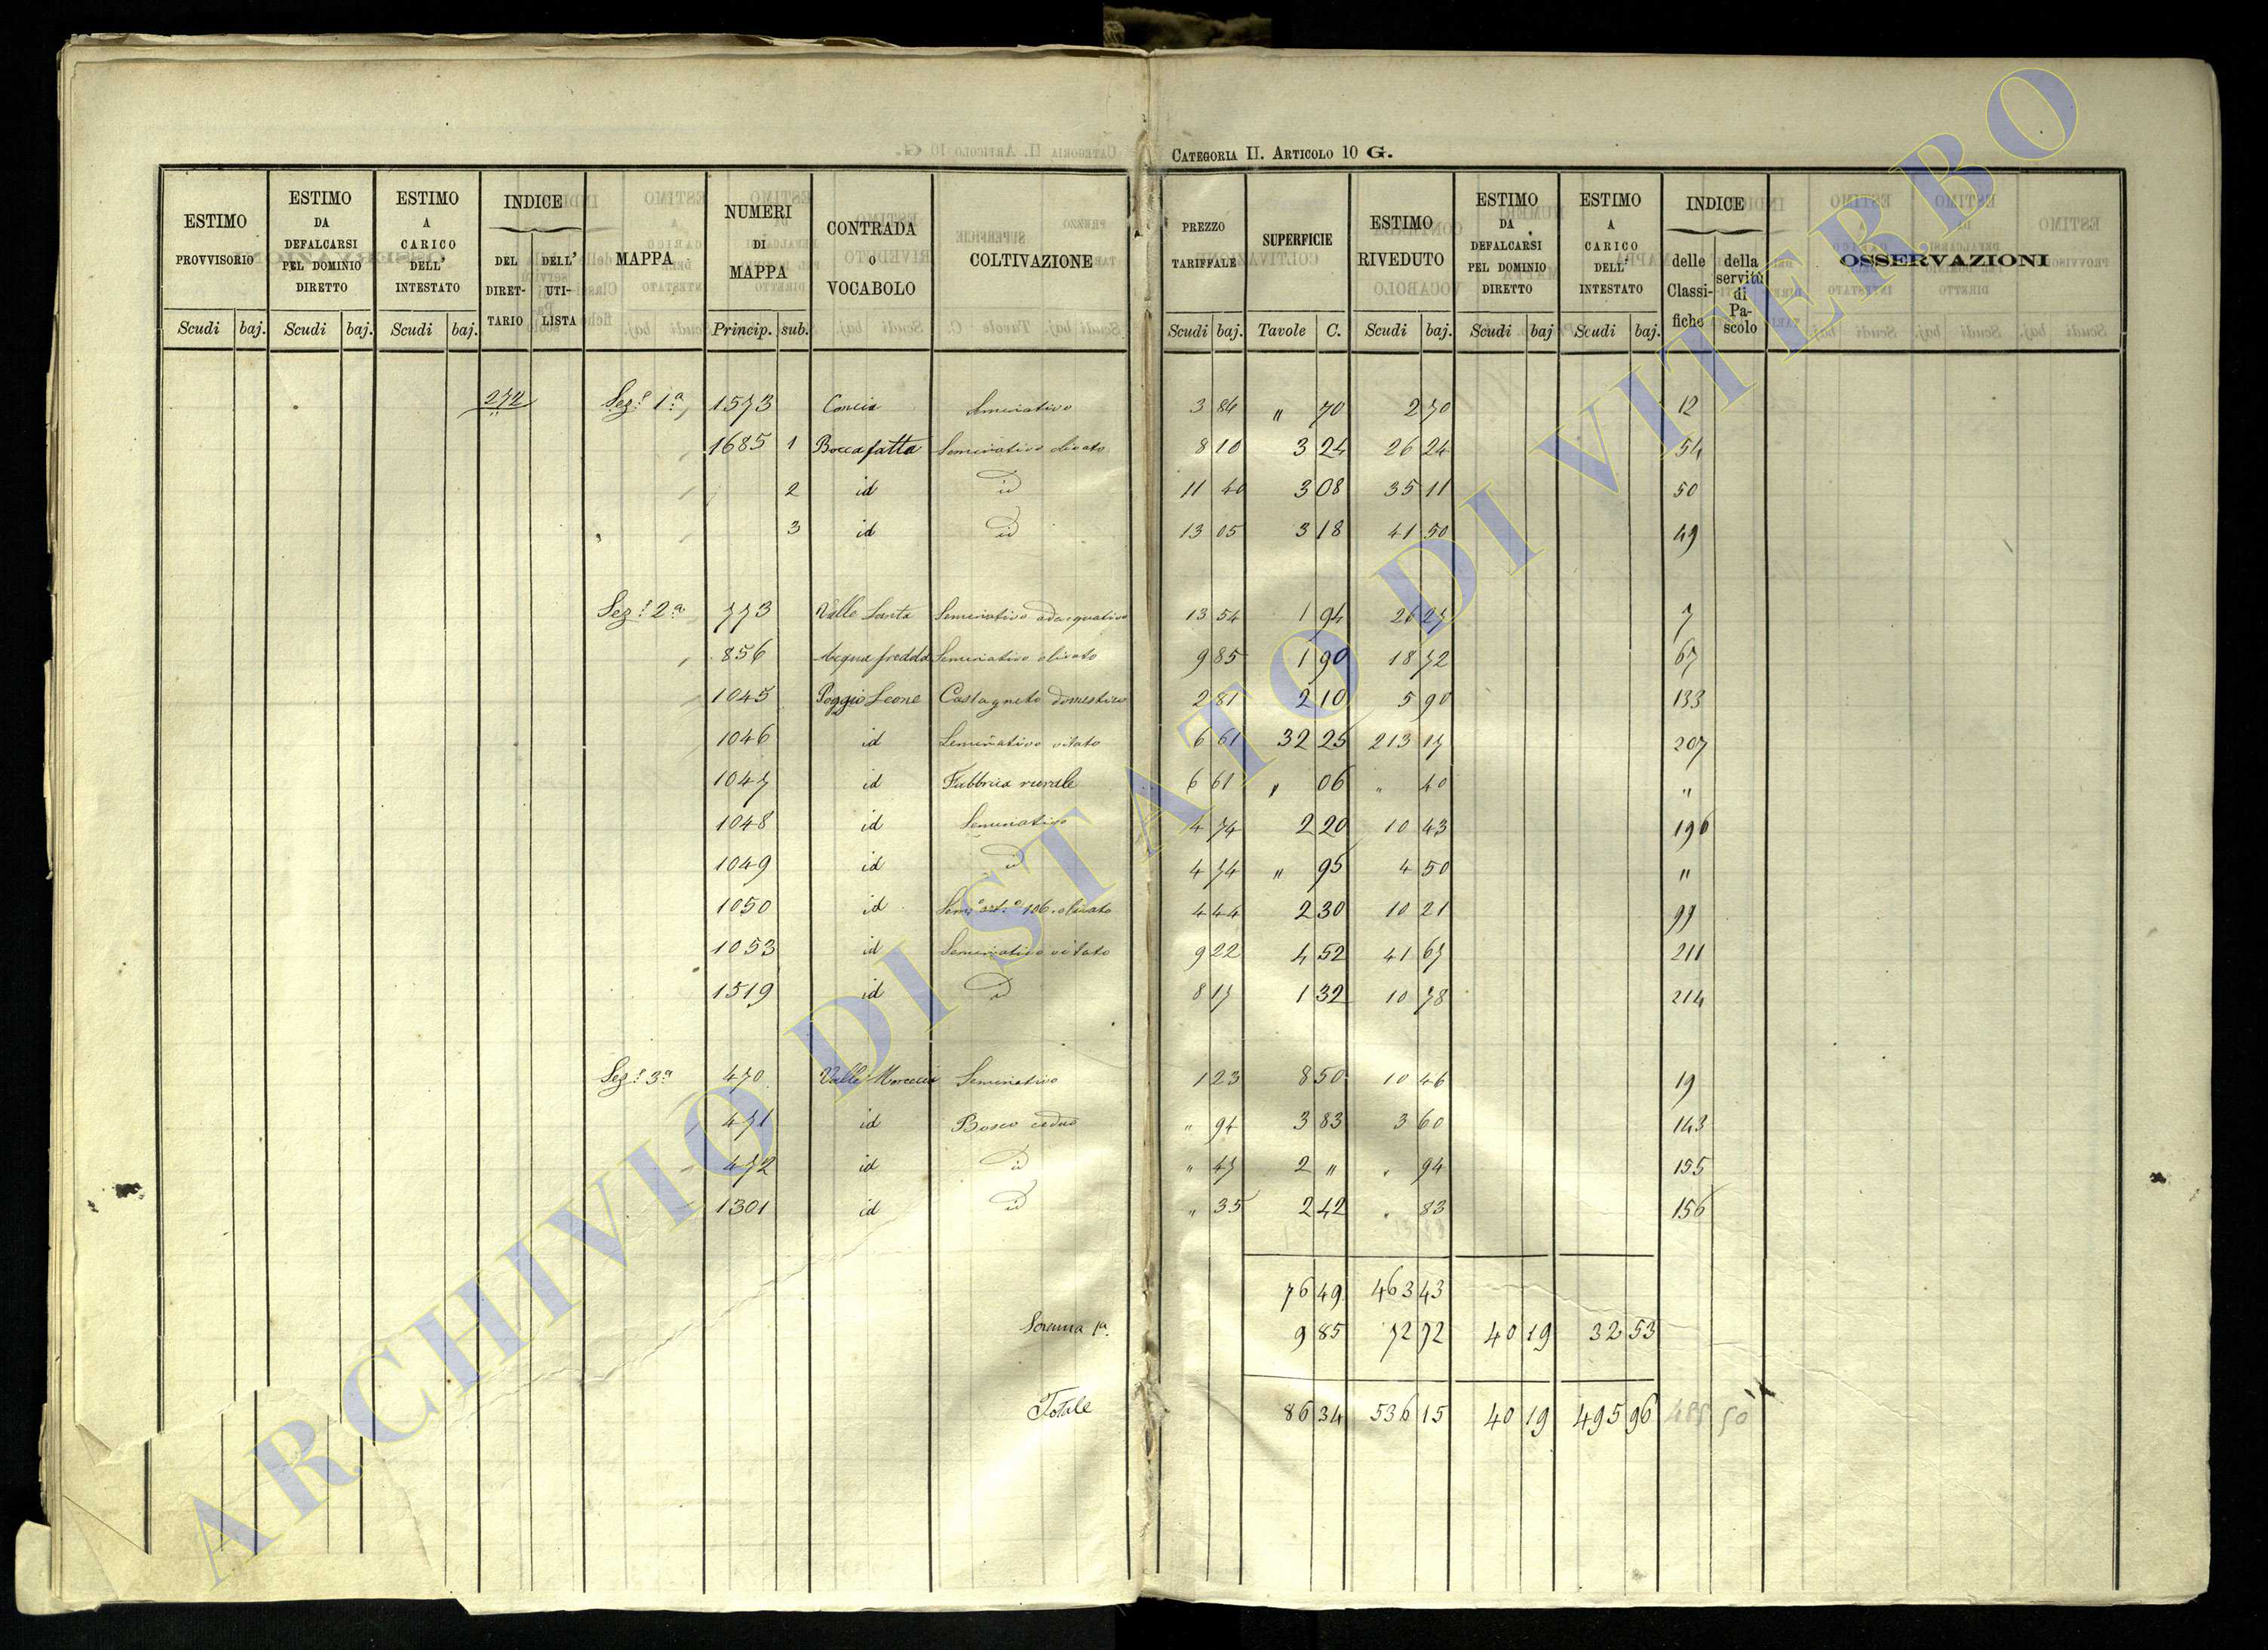 CATEGORIA II. ARTICOLO 10 G.
ESTIMO PROVVISORIO Scudi baj.
ESTIMO DA DEFALCARSI PEL DOMINIO DIRETTO Scudi baj.
ESTIMO A CARICO DELL' INTESTATO Scudi baj.
INDICE DEL DIRET- TARIO DELL' UTI- LISTA
MAPPA
NUMERI DI MAPPA Princip. sub.
CONTRADA O VOCABOLO
COLTIVAZIONE
PREZZO TARIFFALE Scudi baj.
SUPERFICIE Tavole C.
ESTIMO RIVEDUTO Scudi baj.
ESTIMO DA DEFALCARSI PEL DOMINIO DIRETTO Scudi baj
ESTIMO A CARICO DELL' INTESTATO Scudi baj.
INDICE delle Classi- fiche della servitù di Pa- scolo
OSSERVAZIONI
272 Sez.e 1a 1573 Concia Seminativo 3 84 " 70 2 70 12
1685 1 Boccafatta Seminativo olivato 8 10 3 24 26 24 54
2 id id 11 40 3 08 35 11 50
3 id id 13 05 3 18 41 50 49
Sez.e 2a 773 Valle Santa Seminativo adacquativo 13 54 1 94 26 27 7
856 Acqua fredda Seminativo olivato 9 85 1 90 18 72 67
1045 Poggio Leone Castagneto domestico 2 81 2 10 5 90 133
1046 id Seminativo vitato 6 61 32 25 213 17 207
1047 id Fabbrica rurale 6 61 " 06 " 40 "
1048 id Seminativo 4 74 2 20 10 43 196
1049 id id 4 74 " 95 4 50 "
1050 id olivato 4 44 2 30 10 21 99
1053 id Seminativo vitato 9 22 4 52 41 67 211
1519 id id 8 17 1 32 10 78 214
Sez.e 3a 470 Valle Seminativo 1 23 8 50 10 46 19
471 id Bosco ceduo " 94 3 83 3 60 143
472 id id " 47 2 " " 94 155
1301 id id " 35 2 42 " 83 156
76 49 463 43
Somma 1a. 9 85 72 72 40 19 32 53
Totale 86 34 536 15 40 19 495 96
ARCHIVIO DI STATO DI VITERBO